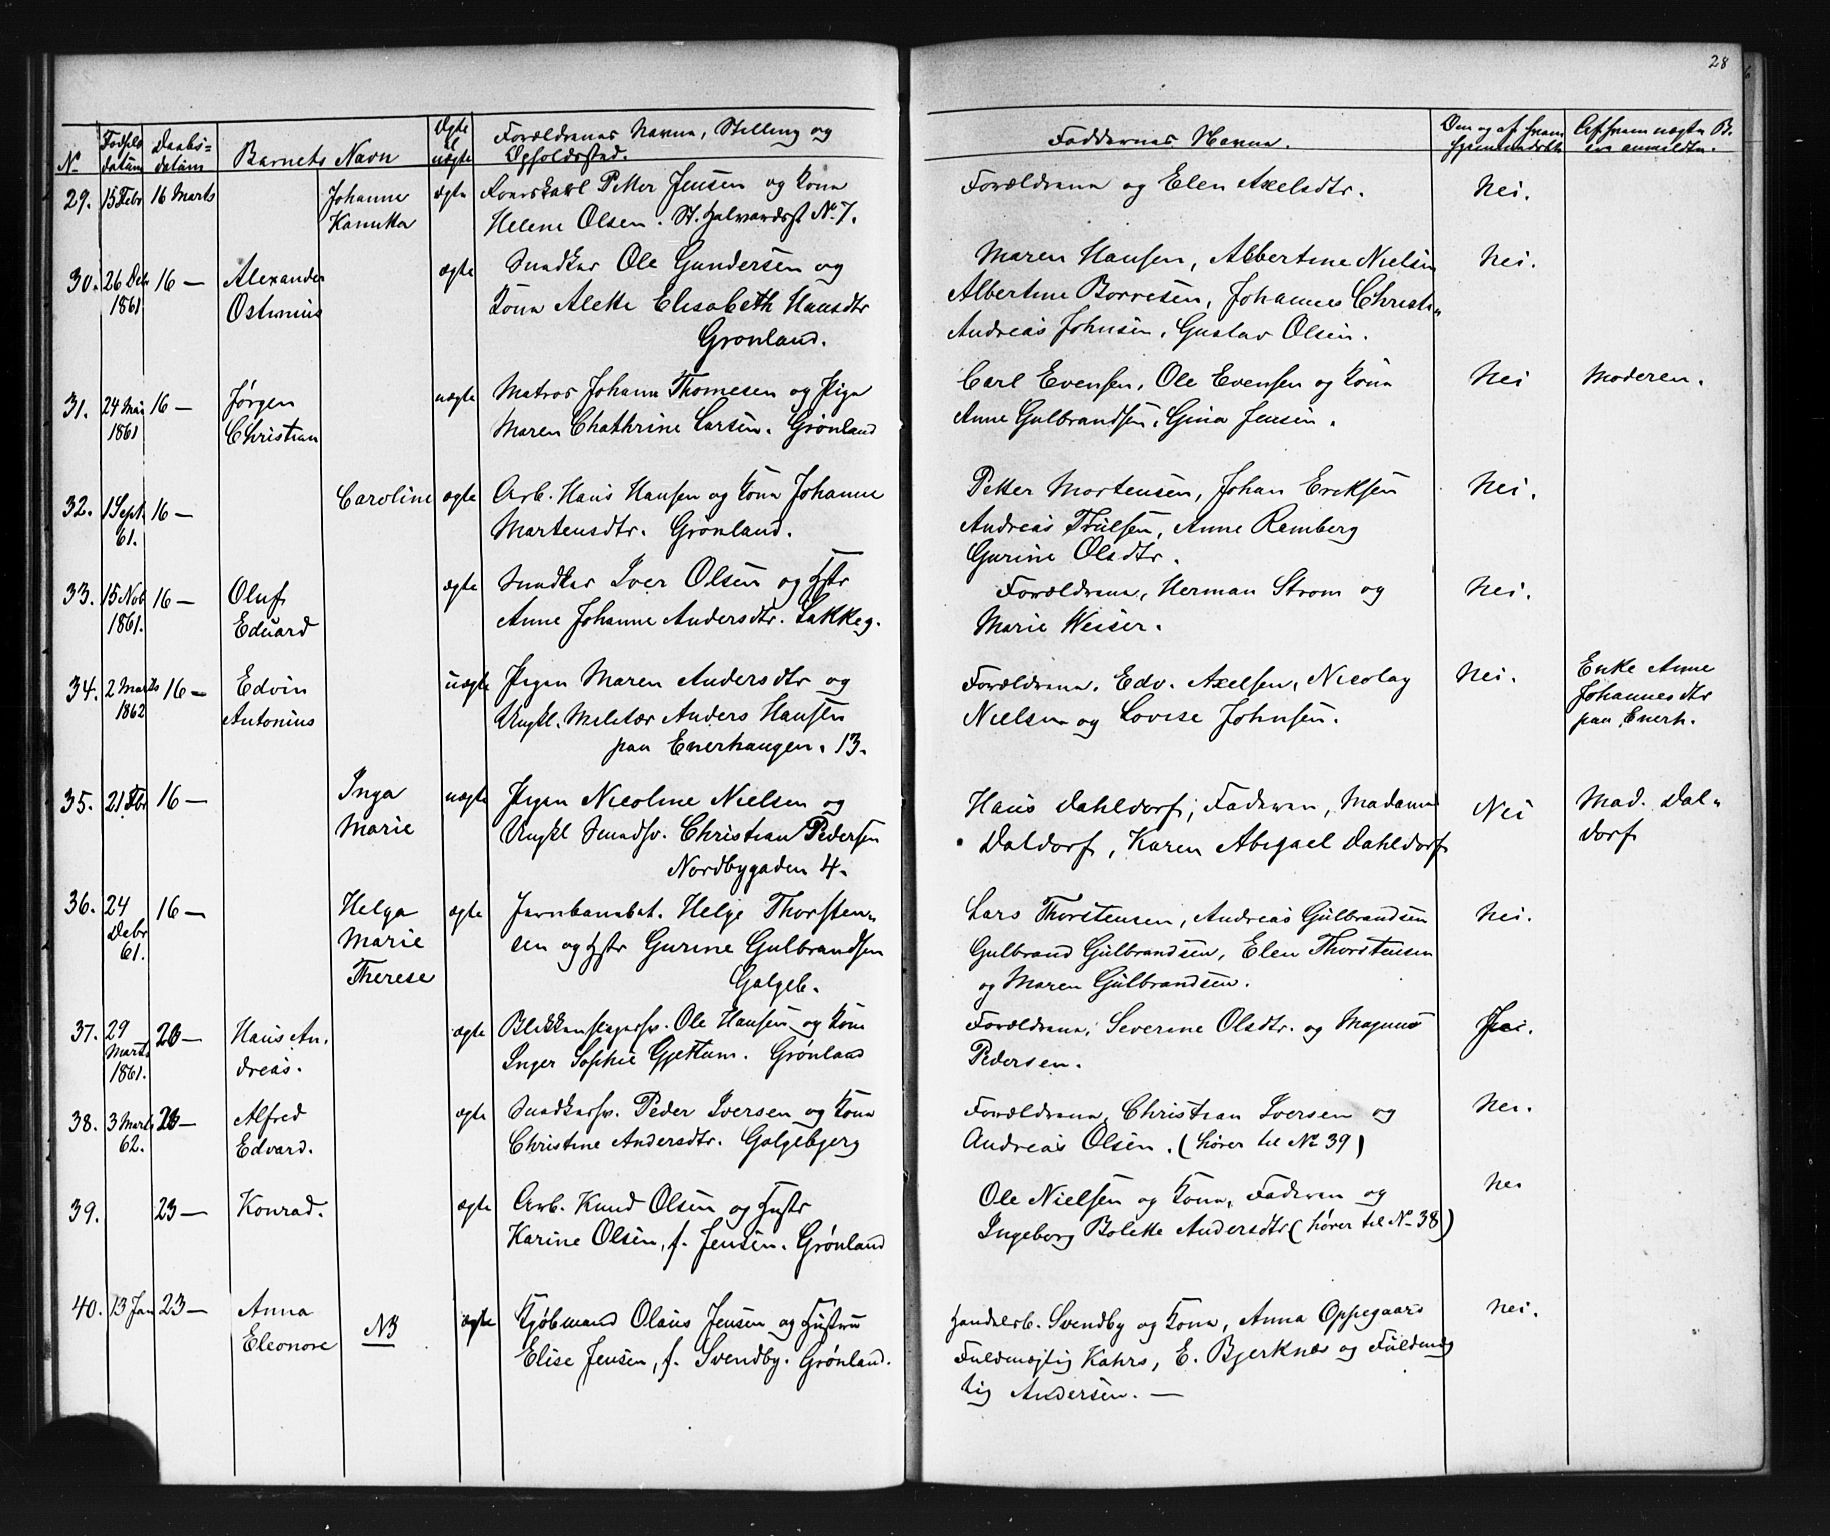 28
No
Fødsels datum
Daabs= datum
Barnets Navn
Ægte el uægte
Forældrenes Navne, Stilling og Opholdssted.
Faddernes Navne.
Om og af hvem hjemmedøbt
Af hvem uægte B. er anmeldte.
29. 15 Febr 16 Marts Johanne ægte Petter Jensen og Kone Forældrene og Elen Axelsdtr. Nei.
Helene Olsen. St. Halvardsgt No 7.
30. 26 Debr 16 — Alexander ægte Snedker Ole Gundersen og Maren Hansen, Albertine Nielsen Nei.
1861 Kone Alette Elisabeth Hansdtr Albertine Borresen, Johannes Christ
Grønland. Andreas Johnsen, Gustav Olsen.
31. 24 Mai 16 — Jørgen uægte Matros Johann Thomesen og Pige Carl Evensen, Ole Evensen og Kone Nei Moderen.
1861 Christian Maren Chathrine Larsen. Grønland Anne Gulbrandsen, Gina Jensen.
32. 1 Sept 16 — Caroline ægte Arb. Hans Hansen og Kone Johanne Petter Mortensen, Johan Eriksen Nei.
61. Martensdtr. Grønland. Andreas Anne Remberg
Gurine Olsdtr.
33. 15 Nob 16 — Oluf ægte Snedker Iver Olsen og Hstr Forældrene, Herman Strøm og Nei.
1861. Eduard Anne Johanne Andersdtr. Lakkeg. Marie Weiser.
34. 2 Marts 16 — Edvin uægte Pigen Maren Andersdtr og Forældrene. Edv. Axelsen, Nicolay Nei. Enke Anne
1862 Antonius Ungkl. Militær Anders Hansen Nielsen og Lovise Johnsen. Johannesdtr
paa Enerhaugen. 13. paa Enerh.
35. 21 Fbr 16 — Inga uægte Pigen Nicoline Nielsen og Hans Dahldorf, Faderen, Madame Nei Mad. Dal-
Marie Ungkl Smedsv. Christian Pedersen Daldorf, Karen Abigael Dahldorf dorf
Nordbygaden 4.
36. 24 16 — Helga ægte Jernbanebet. Helge Thorsten- Lars Thorstensen, Andreas Gulbrandsen Nei.
Debr Marie sen og Hstr Gurine Gulbrandsen Gulbrand Gulbrandsen, Elen Thorstensen
61. Therese Galgeb. og Maren Gulbrandsen.
37. 29 23 — Hans An- ægte Blikkenslagersv. Ole Hansen og Kone Forældrene, Severine Olsdtr. og Magnus
Marts dreas. Inger Sophie Gjettum. Grønland Pedersen.
1861.
38. 3 Marts 23 — Alfred ægte Snedkersv. Peder Iversen og Kone Forældrene, Christian Iversen og Nei.
62. Edvard. Christine Andersdtr. Galgebjerg Andreas Olsen. (hører til No 39)
39. 23 — Konrad. ægte Arb. Knud Olsen og Hustr Ole Nielsen og Kone, Faderen og Nei
Karine Olsen, f. Jensen. Grønland Ingeborg Bolette Andersdtr (hører til No 38)
40. 13 Jan 23 — Anna NB ægte Kjøbmand Olaus Jensen og Hustru Handelsb. Svendby og Kone, Anna Oppegaard Nei.
Eleonore Elise Jensen, f. Svendby. Grønland. Fuldmægtig Kahrs, E. Bjerknes og Fuldmæg
tig Andersen. —